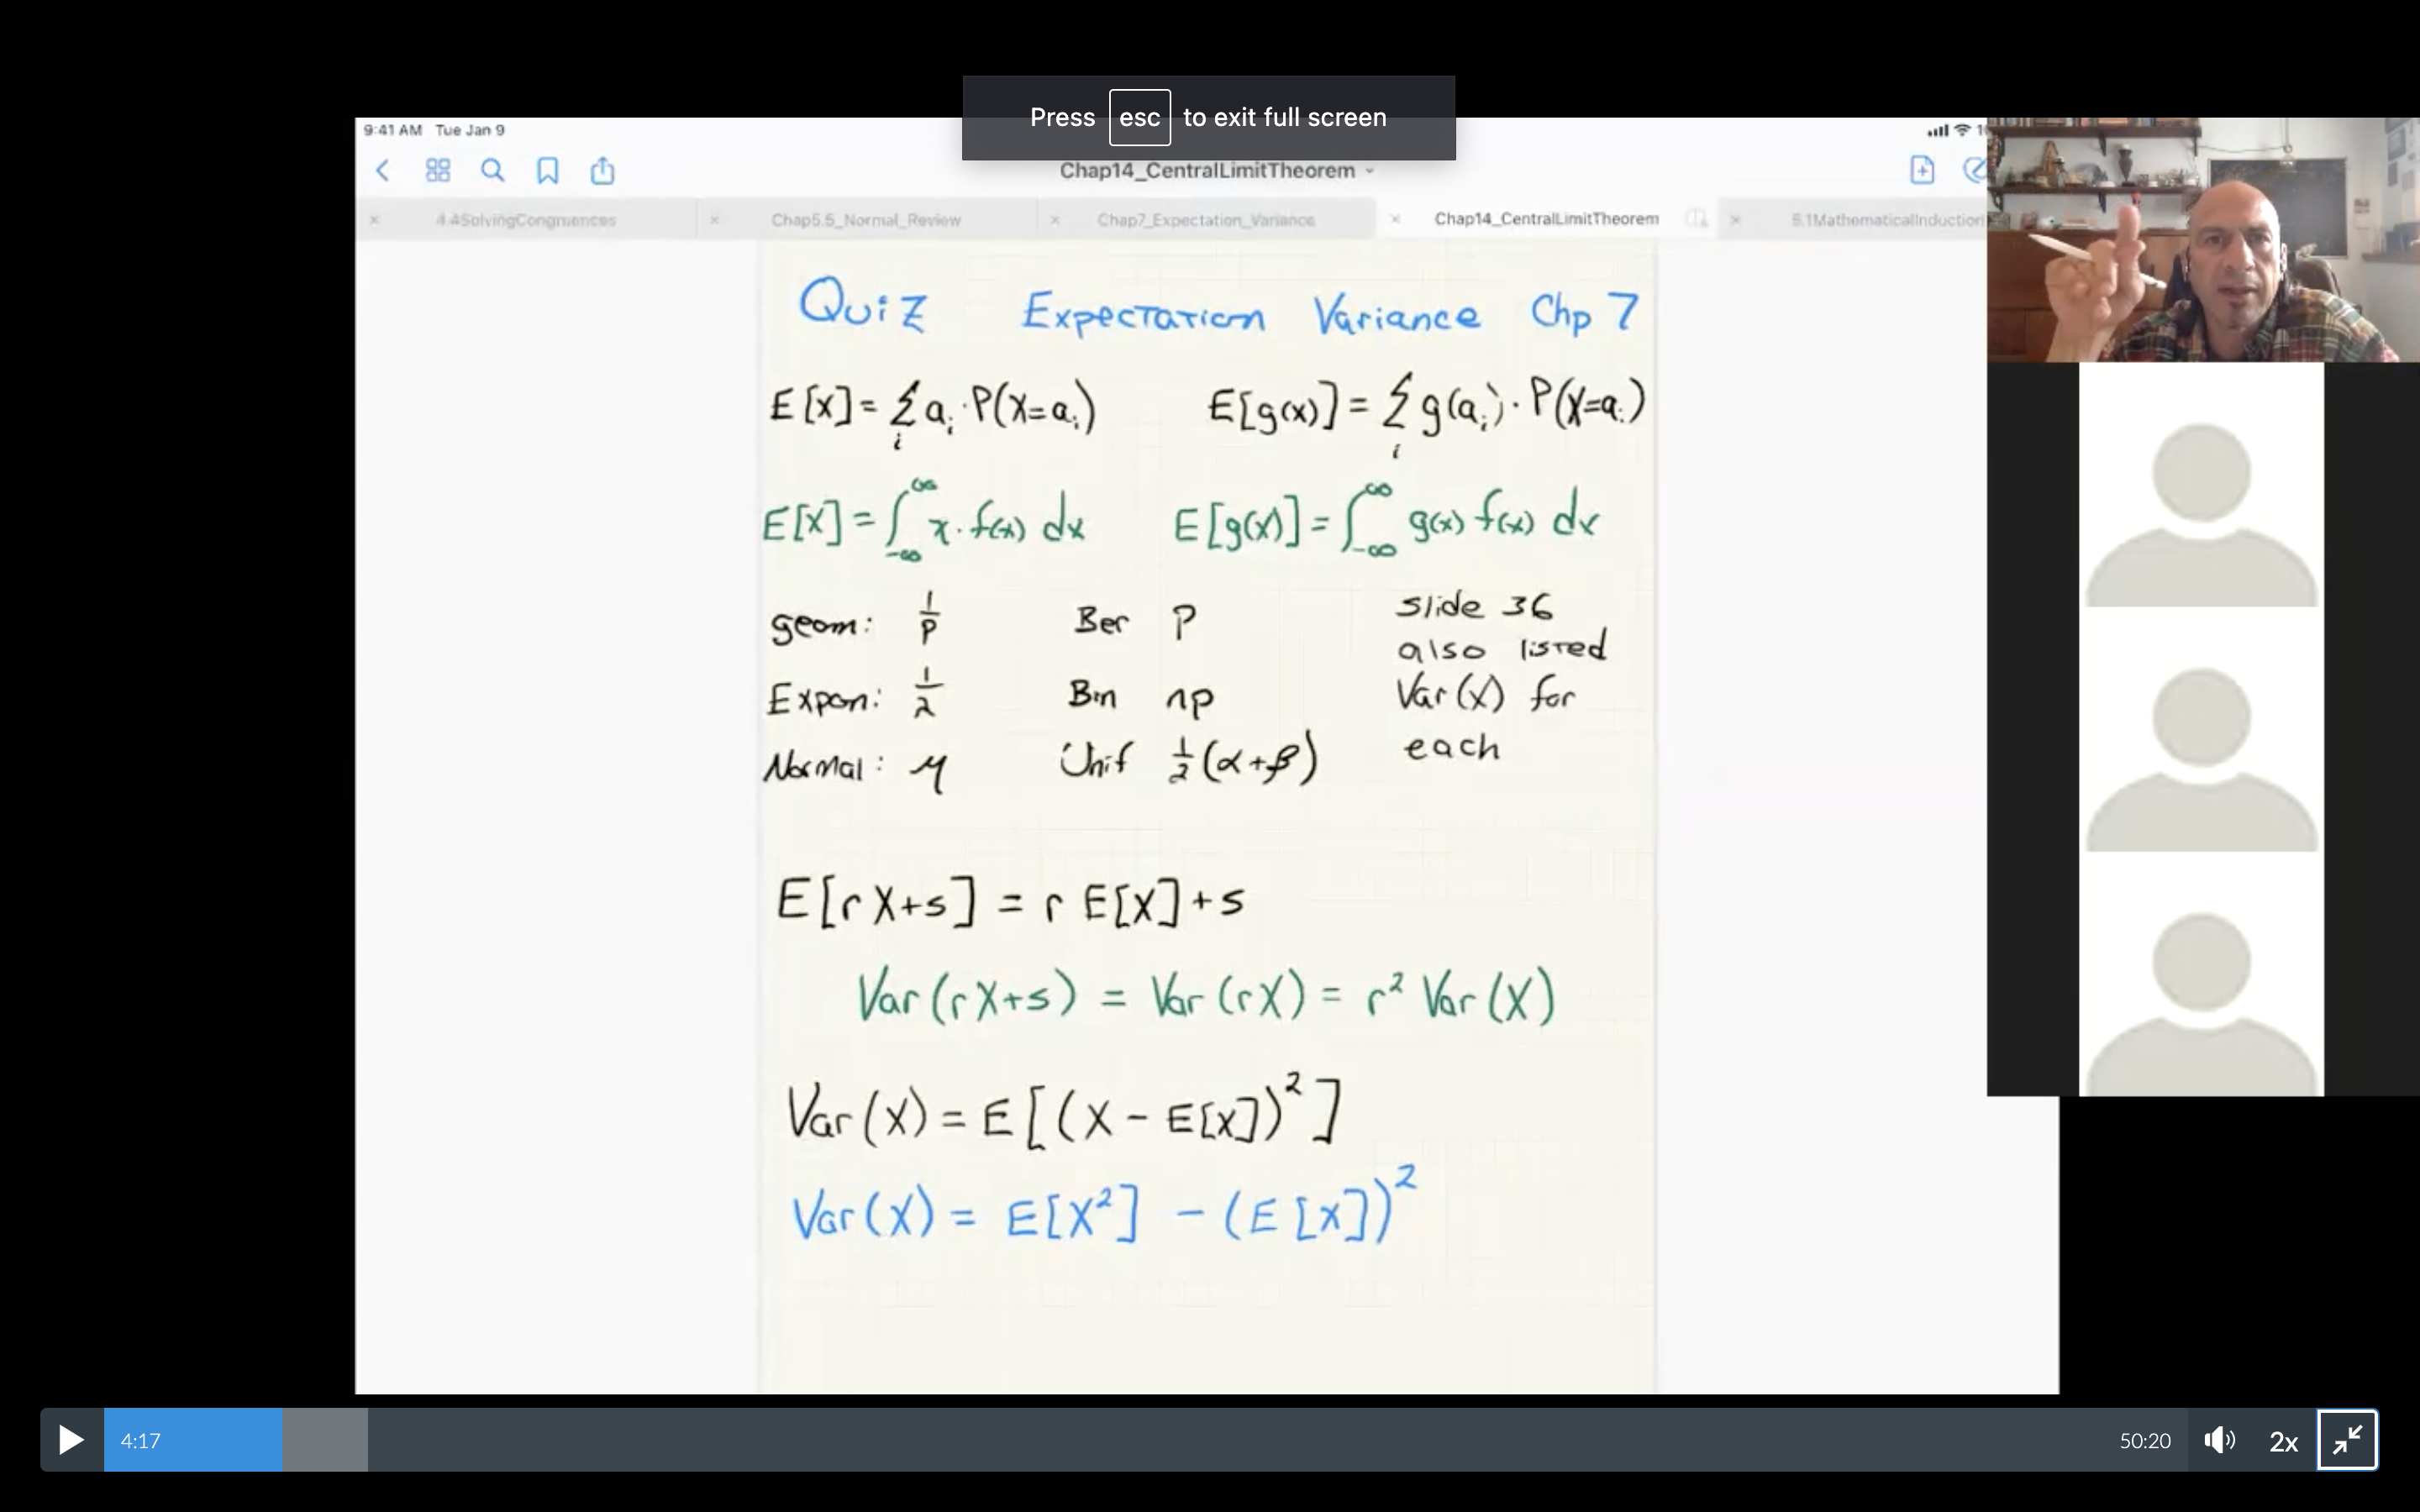 Press esc to exit full screen
9:41 AM Tue Jan 9
Chap14_CentralLimitTheorem
4.4SolvingCongruences Chap5.5_Normal_Review Chap7_Expectation_Variance Chap14_CentralLimitTheorem 5.1MathematicalInduction
Quiz Expectation Variance Chp 7
E[x] = ∑_i a_i · P(X=a_i) E[g(x)] = ∑_i g(a_i) · P(X=a_i)
E[X] = ∫_{-∞}^{∞} x · f(x) dx E[g(X)] = ∫_{-∞}^{∞} g(x) f(x) dx
geom: 1/p Ber P slide 36
also listed
Expon: 1/λ Bin np Var(X) for
Normal: μ Unif 1/2(α+β) each
E[rX+s] = r E[X]+s
Var(rX+s) = Var(rX) = r² Var(X)
Var(X) = E[(X - E[X])²]
Var(X) = E[X²] - (E[X])²
4:17 50:20 2x